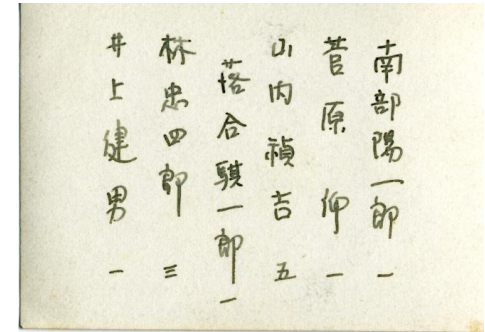 南部陽一郎 一
菅原仰 一
山内禎吉 五
落合騏一郎 一
林忠四郎 三
井上健男 一